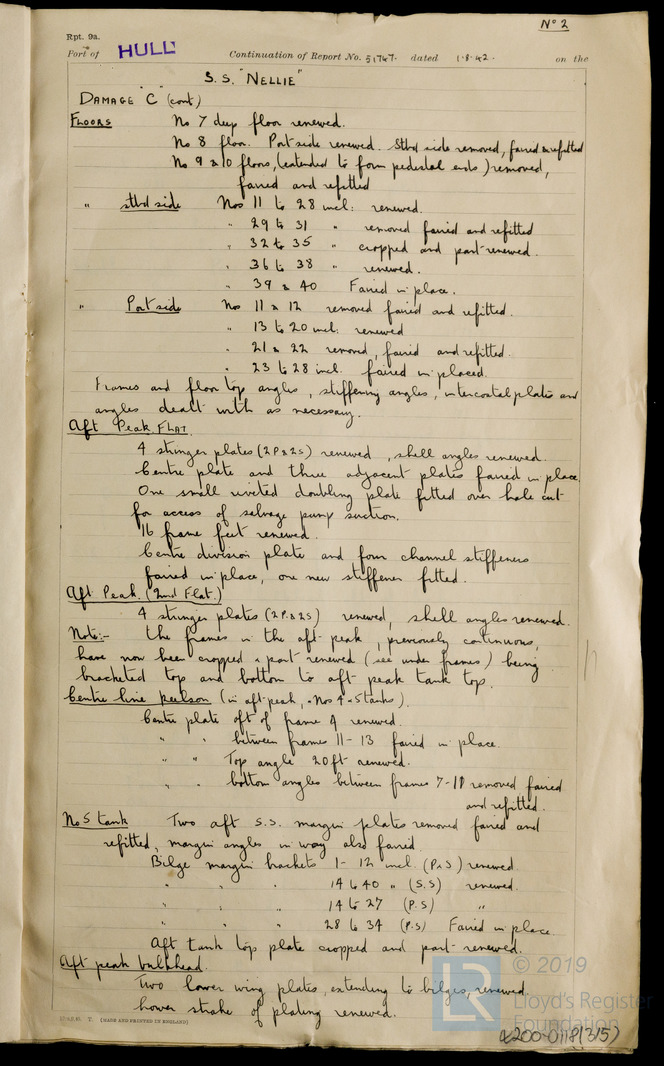 Nº 2
Rpt. 9a.
Port of HULL Continuation of Report No. 51747. dated 1.8.42. on the
S.S. "NELLIE"
DAMAGE "C" (cont)
FLOORS No 7 deep floor renewed.
No 8 floor. Port side renewed. Stbd side removed, faired & refitted
No 9 & 10 floors, (extended to form pedestal ends) removed,
faired and refitted
" stbd side Nos 11 to 28 incl: renewed.
" 29 to 31 " removed faired and refitted
" 32 to 35 " cropped and part renewed.
" 36 to 38 " renewed.
" 39 & 40 Faired in place.
" Port side Nos 11 & 12 removed faired and refitted.
" 13 to 20 incl: renewed
" 21 & 22 removed, faired and refitted.
" 23 to 28 incl. faired in placed.
Frames and floor top angles, stiffening angles, intercostal plates and
angles dealt with as necessary.
Aft Peak FLAT.
4 stringer plates (2P & 2S) renewed, shell angles renewed.
Centre plate and three adjacent plates faired in place.
One small riveted doubling plate fitted over hole cut
for access of selvage pump suction.
16 frame feet renewed.
Centre division plate and four channel stiffeners
faired in place, one new stiffener fitted.
Aft Peak. (2nd Flat.)
4 stringer plates (2P. & 2S) renewed, shell angles renewed.
Note:- The frames in the aft peak, previously continuous,
have now been cropped & part renewed (see under frames) being
bracketed top and bottom to aft peak tank top.
Centre line keelson (in aft peak, & Nos 4 & 5 tanks).
Centre plate aft of frame 4 renewed.
" " between frames 11-13 faired in place.
" " Top angle 20ft renewed.
" " bottom angles between frames 7-11 removed faired
and refitted.
No 5 tank Two aft S.S. margin plates removed faired and
refitted, margin angles in way also faired.
Bilge margin brackets 1-12 incl. (P & S) renewed.
" " " 14 to 40 " (S.S) renewed.
" " " 14 to 27 (P.S) "
" " " 28 to 34 (P.S) Faired in place.
Aft tank top plate cropped and part renewed.
Aft peak bulkhead.
Two lower wing plates, extending to bilges, renewed.
Lower strake of plating renewed.
T. (MADE AND PRINTED IN ENGLAND)
© 2019
Lloyd's Register
Foundation